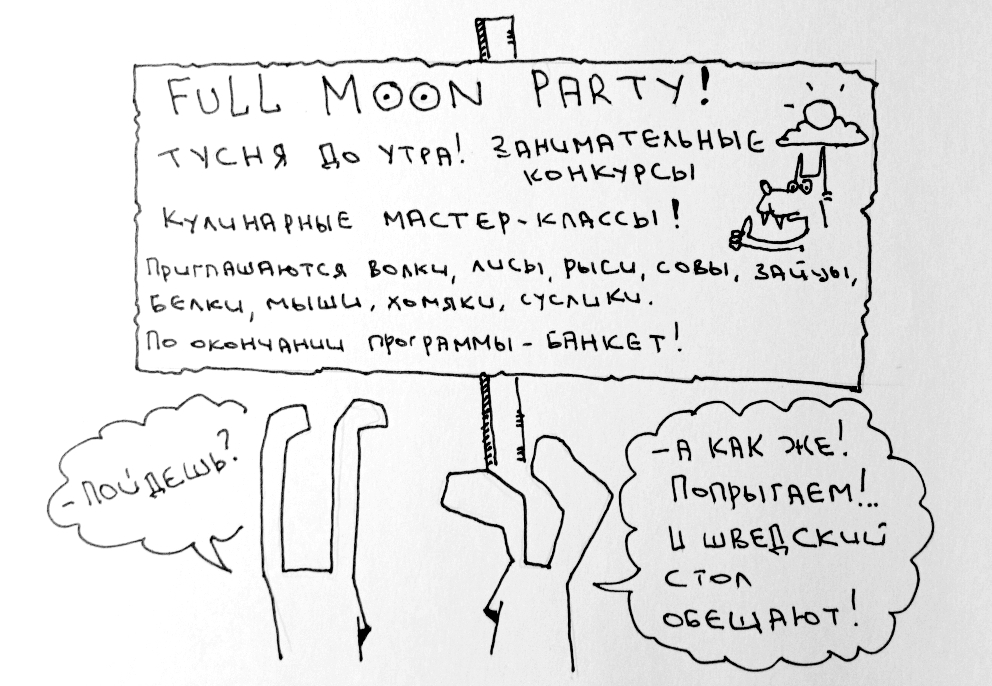 FULL MOON PARTY!
ТУСНЯ ДО УТРА! ЗАНИМАТЕЛЬНЫЕ
КОНКУРСЫ
КУЛИНАРНЫЕ МАСТЕР-КЛАССЫ!
ПРИГЛАШАЮТСЯ ВОЛКИ, ЛИСЫ, РЫСИ, СОВЫ, ЗАЙЦЫ,
БЕЛКИ, МЫШИ, ХОМЯКИ, СУСЛИКИ.
ПО ОКОНЧАНИИ ПРОГРАММЫ - БАНКЕТ!
- ПОЙДЕШЬ?
- А КАК ЖЕ!
ПОПРЫГАЕМ!..
И ШВЕДСКИЙ
СТОЛ
ОБЕЩАЮТ!